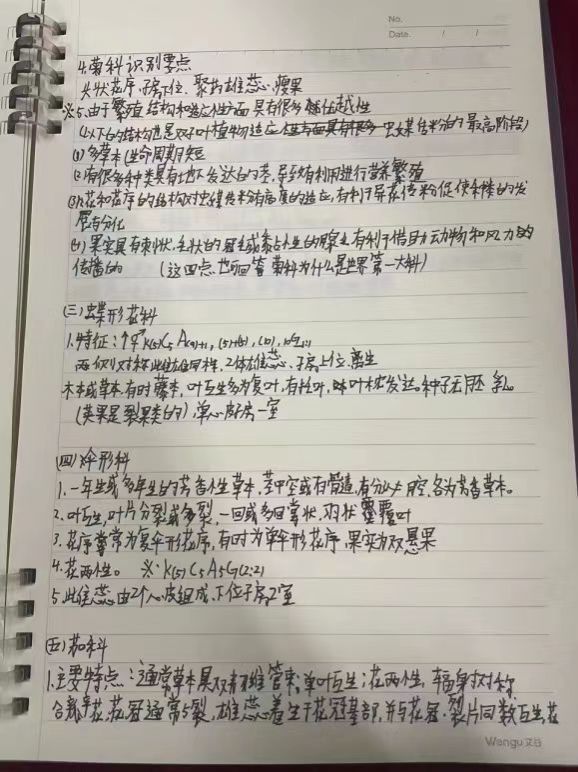 No.
Date. / /
4.菊科识别要点
头状花序.子房下位、聚药雄蕊.瘦果
※5.由于繁殖.结构和适应性方面具有很多优越性
(以下的结构也是双子叶植物适应虫媒传粉的最高阶段)
(1)多草本(生命周期短
(2)有很多种类具有地下发达的茎,导致有利用进行营养繁殖
(3)花和花序的结构对虫媒传粉有高度的适应,有利于异花传粉促使种族的发
展与分化
(4)果实具有刺状、毛状的冠毛或黏性的腺毛有利于借助动物和风力的
传播的 (这四点也可回答菊科为什么是世界第一大科)
(三)蝶形花科
1.特征:↑
两侧对称 雌雄同株,2体雄蕊、子房上位,离生
木本或草本.有时藤本,叶互生多为复叶,有托叶,叶枕发达.种子无胚乳。
(荚果是裂果类的)单心皮子房一室
(四)伞形科
1.一年生或多年生的芳香性草本,茎中空或有骨道,有分泌腔,各为芳香草本。
2.叶互生,叶片分裂或多裂,一回或多回掌状、羽状复叶
3.花序常为复伞形花序,有时为单伞形花序,果实为双悬果
4.花两性。 ※·K(5)C5A5G(2:2)
5.此雌蕊由2个心皮组成、下位子房2室
(五)茄科
1.主要特点:通常草本具双韧维管束,单叶互生;花两性,辐射对称
合瓣花,花冠通常5裂,雄蕊着生于花冠基部,并与花冠裂片同数互生,花
Wengu 文谷